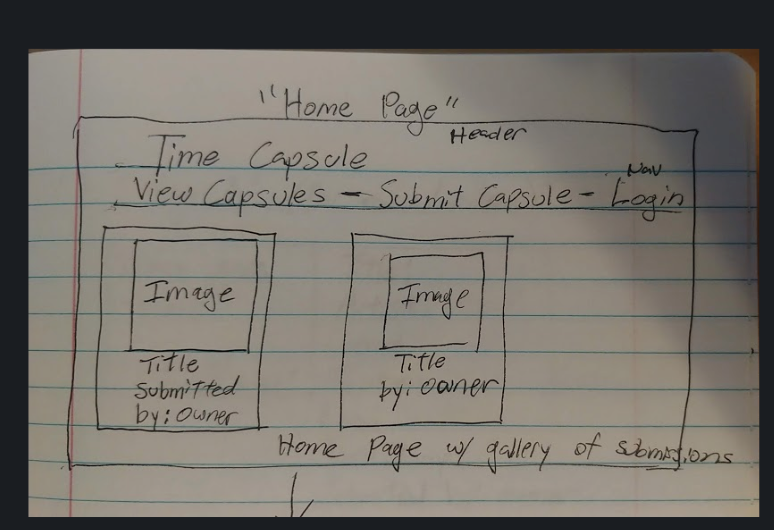 "Home Page"
Header
Time Capsule
Nav
View Capsules - Submit Capsule - Login
Image
Title
Submitted
by: Owner
Image
Title
by: owner
Home Page w/ gallery of submissions